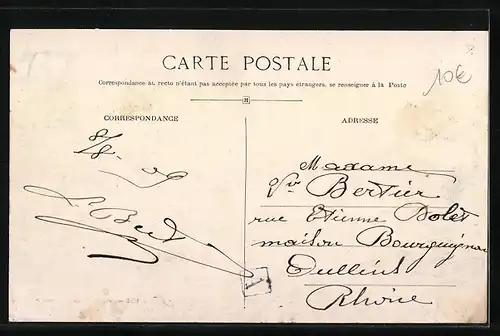 CARTE POSTALE
Correspondance au recto n'étant pas acceptée par tous les pays étrangers, se renseigner à la Poste
10€
CORRESPONDANCE
ADRESSE
8/8-09
Madame
Bertier
rue Etienne Dolet
maison Bourguignon
Oullins
Rhône